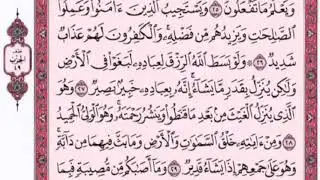 وَيَعْلَمُ مَا تَفْعَلُونَ ٢٥ وَيَسْتَجِيبُ الَّذِينَ ءَامَنُوا وَعَمِلُوا
الصَّالِحَاتِ وَيَزِيدُهُم مِّن فَضْلِهِ وَالْكَافِرُونَ لَهُمْ عَذَابٌ
شَدِيدٌ ٢٦ وَلَوْ بَسَطَ اللَّهُ الرِّزْقَ لِعِبَادِهِ لَبَغَوْا فِي الْأَرْضِ
وَلَٰكِن يُنَزِّلُ بِقَدَرٍ مَّا يَشَاءُ إِنَّهُ بِعِبَادِهِ خَبِيرٌ بَصِيرٌ ٢٧ وَهُوَ
الَّذِي يُنَزِّلُ الْغَيْثَ مِن بَعْدِ مَا قَنَطُوا وَيَنشُرُ رَحْمَتَهُ وَهُوَ الْوَلِيُّ الْحَمِيدُ
٢٨ وَمِنْ ءَايَاتِهِ خَلْقُ السَّمَاوَاتِ وَالْأَرْضِ وَمَا بَثَّ فِيهِمَا مِن دَابَّةٍ
وَهُوَ عَلَىٰ جَمْعِهِمْ إِذَا يَشَاءُ قَدِيرٌ ٢٩ وَمَا أَصَابَكُم مِّن مُّصِيبَةٍ فَبِمَا
الحزب
٤٩